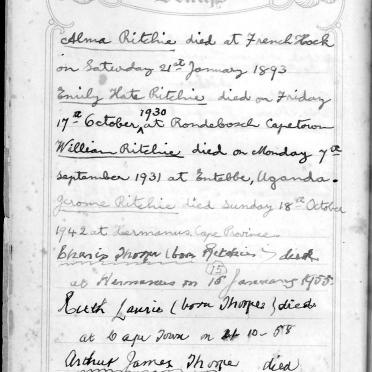 Deaths
Alma Ritchie died at French Hoek
on Saturday 21st January 1893
Emily Kate Ritchie died on Friday
17th October, 1930 at Rondebosch Capetown
William Ritchie died on Monday 7th
September 1931 at Entebbe, Uganda.
Jerome Ritchie died Sunday 18th October
1942 at Hermanus, Cape Province
Thorpe (born Ritchie) died
at Hermanus on 15 (15) January 1955
Ruth Laurie (born Thorpe) died
at Cape Town on 21-10-58
Arthur James Thorpe died